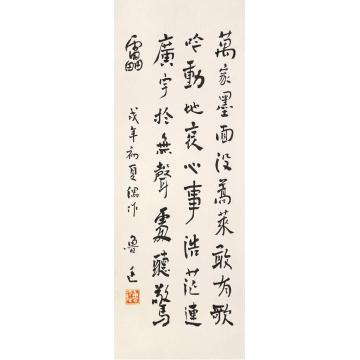 萬家墨面沒蒿萊敢有歌
吟動地哀心事浩茫連
廣宇於無聲處聽驚
靁
戌年初夏偶作 魯迅